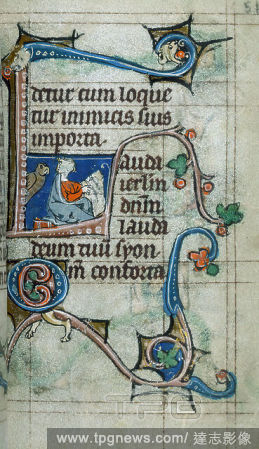 detur cum loque
tur inimicis suis
in porta.
Lauda
ierlm
dnm
lauda
deum tuū syon
Qm conforta
TPG
www.tpgnews.com/ 達志影像